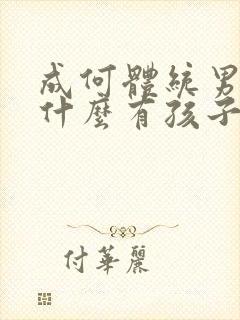 成何體統男
什麼有孩子
付華麗